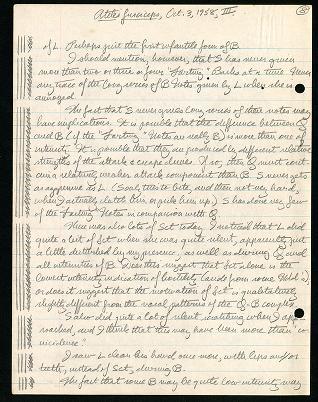 Ateles fusciceps, Oct. 3, 1958, III.
of L. Perhaps just the first infantile form of B.
I should mention, however, that S has never given
more than two or three or four "Farting" Barks at a time. Never
any trace of the long series of B Notes given by L when she is
annoyed!
The fact that S never gives long series of these notes may
have implications. It is possible that the difference between Q
and B (if the "Farting" Notes are really B) is more than one of
intensity. It is possible that they are produced by different relative
strengths of the attack & escape drives. If so, then Q must cont-
ain a relatively weaker attack component than B. S never gets
as aggressive as L. (S only tries to bite, and then not very hard,
when I actually catch him or pick him up.) S has done very few
of the Farting Notes in comparison with Q.
There was also lots of Sct today. I noticed that L did
quite a lot of Sct when she was quite silent, apparently just
a little disturbed by my presence, as well as during Q and
all intensities of B. Does this suggest that Sct alone is the
lowest intensity indication of hostility (aside from some
or does it suggest that the motivation of Sct is qualitatively
slightly different from the vocal patterns of the Q-B complex
S also did quite a lot of silent when I app-
roached, and I think that this may have been more than "co-
incidence."
I saw L clean her hand once more, with lips and/or
teeth, instead of Sct, during B.
The fact that some B may be quite low intensity may